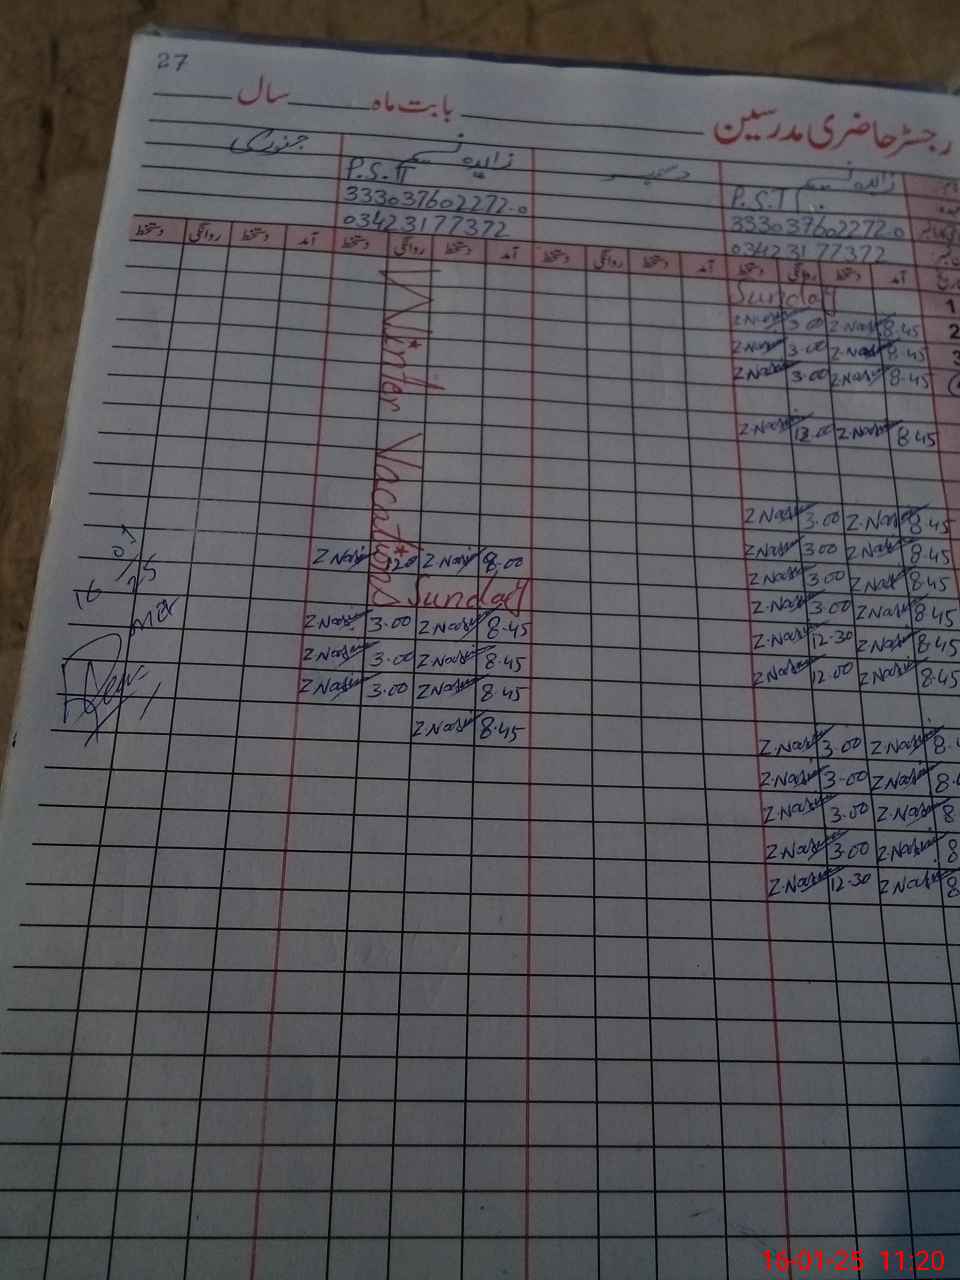 27
رجسٹر حاضری مدرسین بابت ماہ سال
زاہدہ نسیم دسمبر زاہدہ نسیم جنوری
P.S.T P.S.T
33303760 2272-0 333037602272-0
03423177372 03423177372
آمد دستخط روانگی دستخط آمد دستخط روانگی دستخط آمد دستخط روانگی دستخط آمد دستخط روانگی دستخط
Sunday 1
Z Nasim 3.00 Z Nasim 8.45 2
Z Nasim 3.00 Z Nasim 8.45 3
Z Nasim 3.00 Z Nasim 8.45
Z Nasim 12.00 Z Nasim 8.45
Z Nasim 3.00 Z Nasim 8.45
Z Nasim 3.00 Z Nasim 8.45
Z Nasim 3.00 Z Nasim 8.45
Z Nasim 3.00 Z Nasim 8.45
Z Nasim 12.30 Z Nasim 8.45
Z Nasim 12.00 Z Nasim 8.45
Z Nasim 3.00 Z Nasim 8.
Z Nasim 3.00 Z Nasim 8.
Z Nasim 3.00 Z Nasim 8
Z Nasim 3.00 Z Nasim 8
Z Nasim 12.30 Z Nasim 8
Winter Vacations
Z Nasim Z Nasim 8.00
Sunday
Z Nasim 3.00 Z Nasim 8.45
Z Nasim 3.00 Z Nasim 8.45
Z Nasim 3.00 Z Nasim 8.45
Z Nasim 8.45
16/01/25
16-01-25 11:20